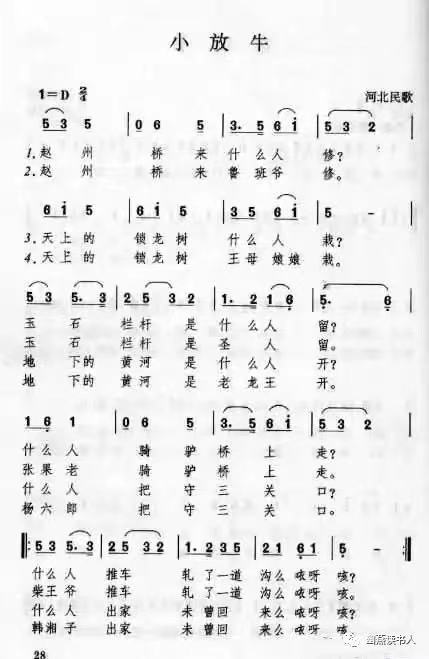 小放牛
1=D 2/4
河北民歌
5 3 5 | 0 6 5 | 3. 5 6 i | 5 3 2 |
1.赵州 桥来 什么人 修?
2.赵州 桥来 鲁班爷 修。
6 i 5 | 6 i 5 | 3. 5 6 i | 5 - |
3.天上的 锁龙树 什么人 栽?
4.天上的 锁龙树 王母娘娘 栽。
5 3 5. 3 | 2 5 3 0 | 1. 2 1 6 | 5. 6 |
玉石 栏杆 是什么人 留?
玉石 栏杆 是圣人 留。
地下的 黄河 是什么人 开?
地下的 黄河 是老龙王 开。
1 6 1 | 0 6 5 | 3. 5 6 i | 5 3 2 |
什么人 骑驴桥上 走?
张果老 骑驴桥上 走。
什么人 把守三关 口?
杨六郎 把守三关 口。
5 3 5. 3 | 2 5 3 2 | 1. 2 3 5 | 2 1 6 1 | 5 -
什么人 推车 轧了一道 沟么咴呀 咳?
柴王爷 推车 轧了一道 沟么咴呀 咳。
什么人 出家 未曾回 来么咴呀 咳?
韩湘子 出家 未曾回 来么咴呀 咳。
28